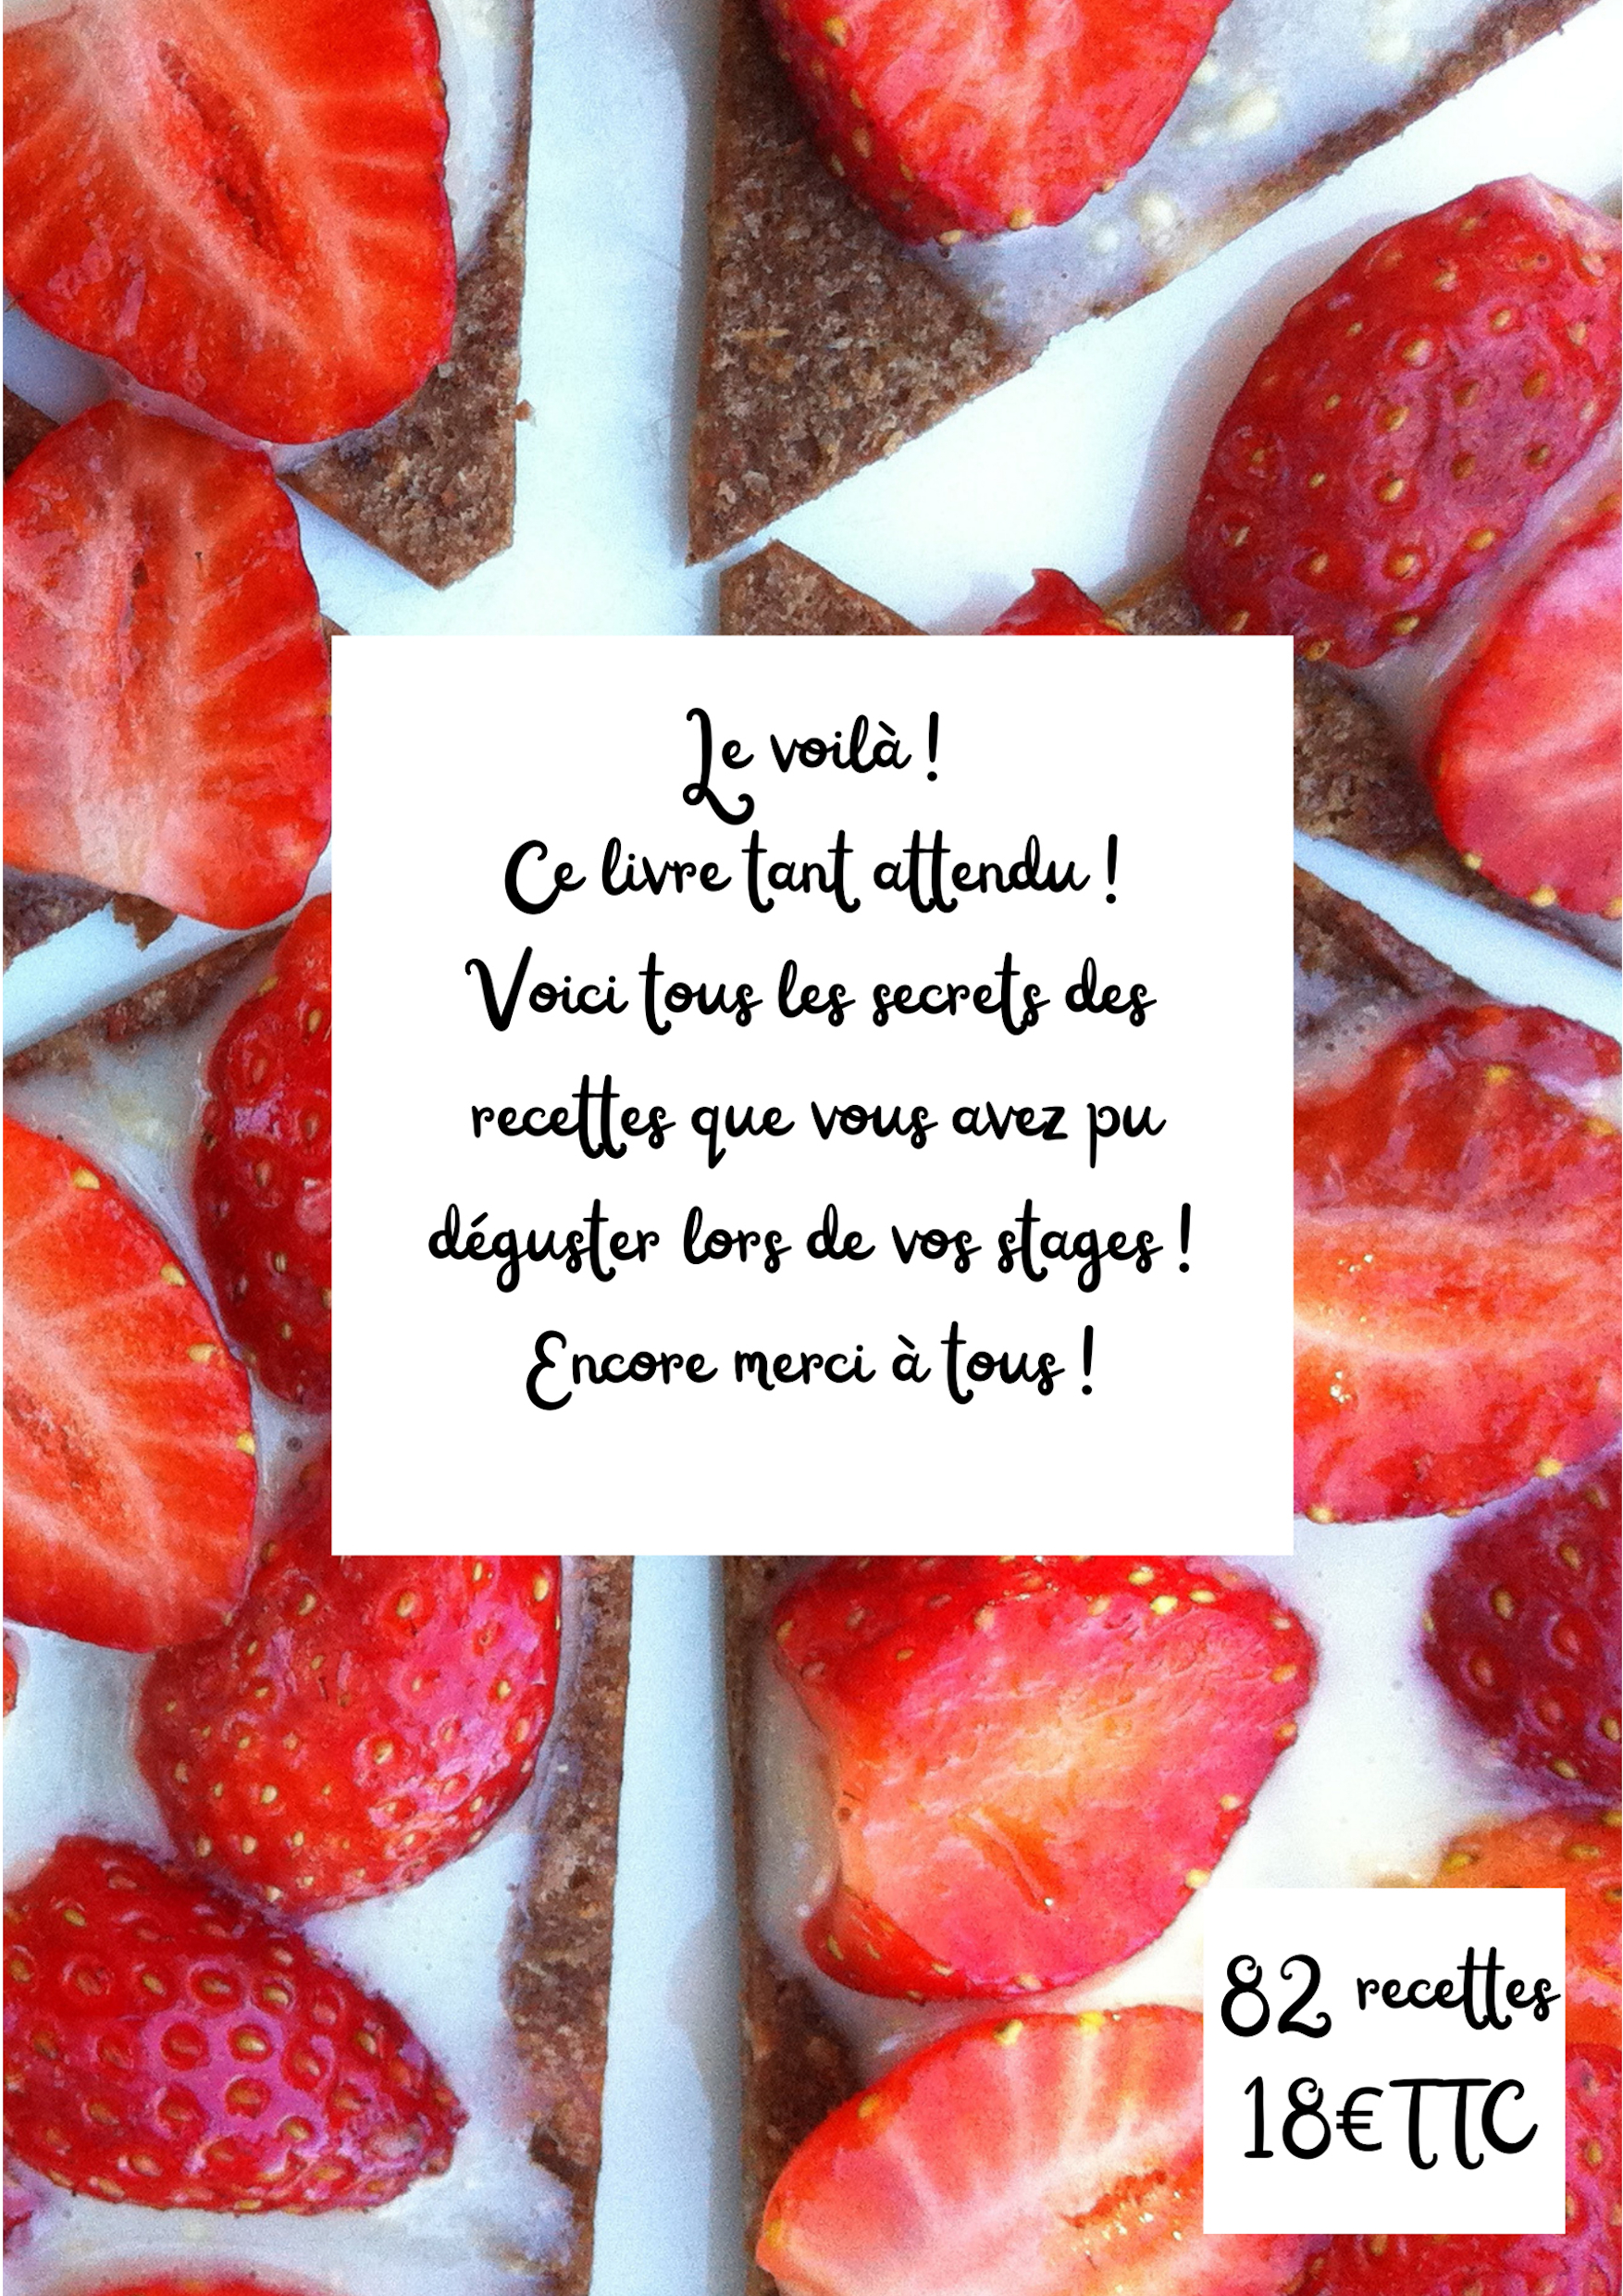 Le voilà !
Ce livre tant attendu !
Voici tous les secrets des
recettes que vous avez pu
déguster lors de vos stages !
Encore merci à tous !
82 recettes
18€TTC